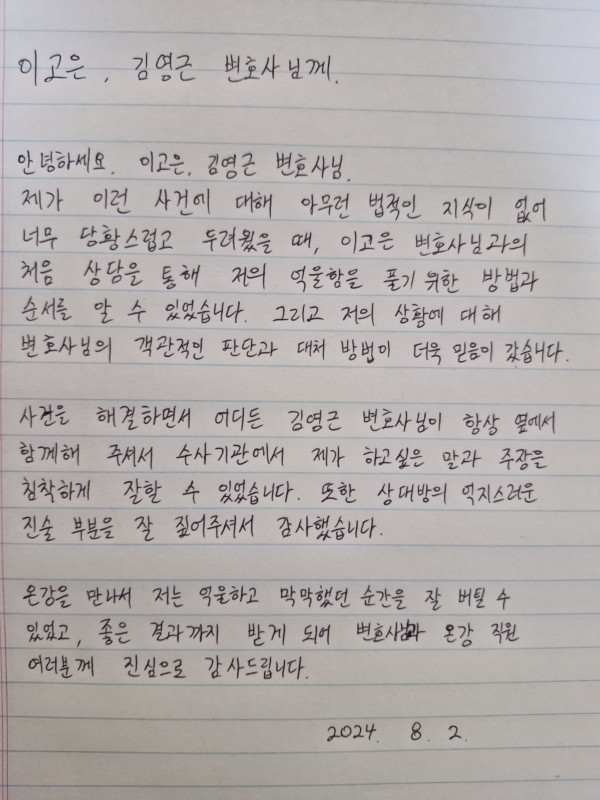 이고은, 김영근 변호사님께.
안녕하세요. 이고은, 김영근 변호사님.
제가 이런 사건에 대해 아무런 법적인 지식이 없어
너무 당황스럽고 두려웠을 때, 이고은 변호사님과의
처음 상담을 통해 저의 억울함을 풀기 위한 방법과
순서를 알 수 있었습니다. 그리고 저의 상황에 대해
변호사님의 객관적인 판단과 대처 방법이 더욱 믿음이 갔습니다.
사건을 해결하면서 어디든 김영근 변호사님이 항상 옆에서
함께해 주셔서 수사기관에서 제가 하고싶은 말과 주장을
침착하게 잘할 수 있었습니다. 또한 상대방의 억지스러운
진술 부분을 잘 짚어주셔서 감사했습니다.
온강을 만나서 저는 억울하고 막막했던 순간을 잘 버틸 수
있었고, 좋은 결과까지 받게 되어 변호사님과 온강 직원
여러분께 진심으로 감사드립니다.
2024. 8. 2.